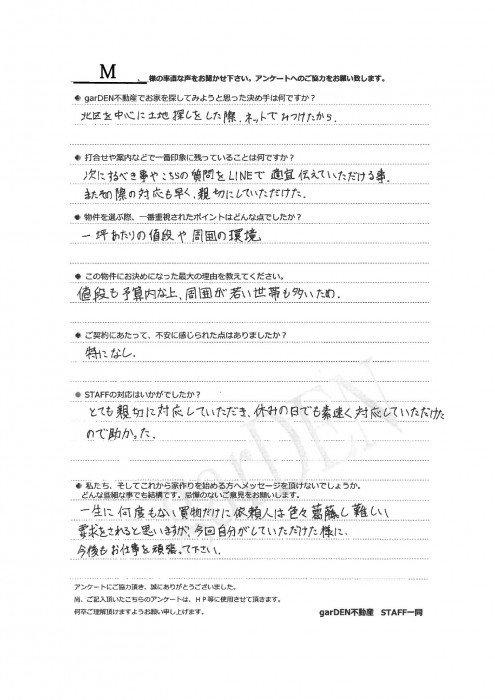 M 様の率直な声をお聞かせ下さい。アンケートへのご協力をお願い致します。
garDEN不動産でお家を探してみようと思った決め手は何ですか？
北区を中心に土地探しをした際、ネットでみつけたから。
打合せや案内などで一番印象に残っていることは何ですか？
次にするべき事やこちらの質問をLINEで適宜伝えていただける事。
またその際の対応も早く、親切にしていただけた。
物件を選ぶ際、一番重視されたポイントはどんな点でしたか？
一坪あたりの値段や周囲の環境
この物件にお決めになった最大の理由を教えてください。
値段も予算内な上、周囲が若い世帯も多いため。
ご契約にあたって、不安に感じられた点はありましたか？
特になし。
STAFFの対応はいかがでしたか？
とても親切に対応していただき、休みの日でも素速く対応していただけた
ので助かった。
私たち、そしてこれから家作りを始める方へメッセージを頂けないでしょうか。
どんな些細な事でも結構です。忌憚のないご意見をお願いします。
一生に何度もない買物だけに依頼人は色々葛藤し難しい
要求をされると思いますが、今回自分がしていただけた様に、
今後もお仕事を頑張って下さい。
アンケートにご協力頂き、誠にありがとうございました。
尚、ご記入頂いたこちらのアンケートは、HP等に使用させて頂きます。
何卒ご理解頂けますようお願い申し上げます。
garDEN不動産 STAFF一同
garDEN